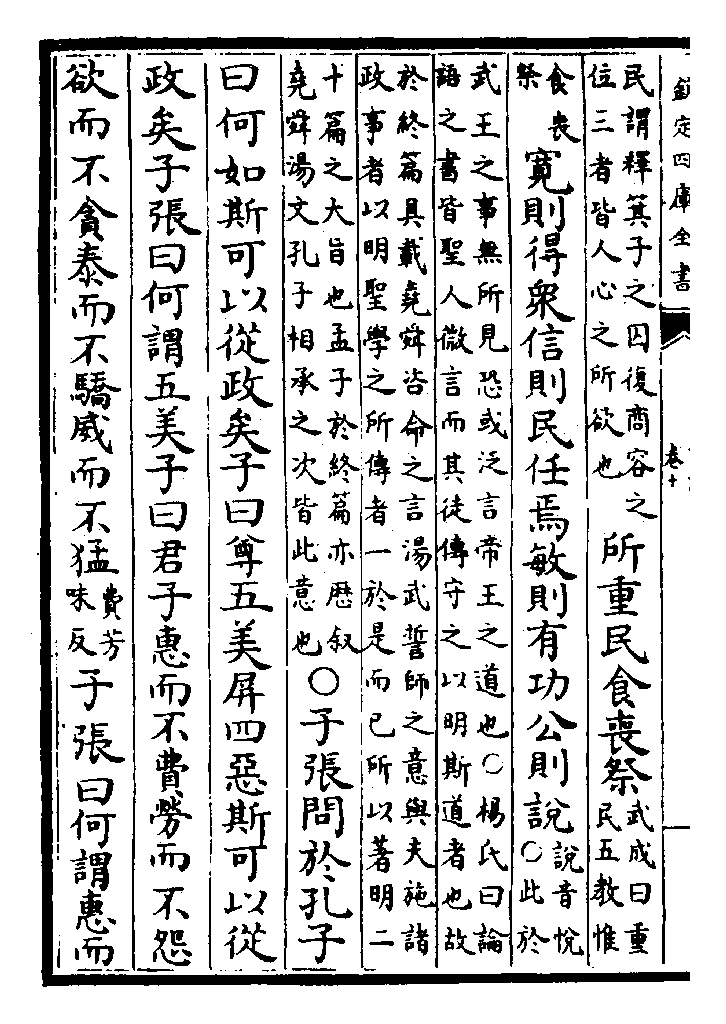 欽定四庫全書
卷十
民謂釋箕子之囚復商容之
位三者皆人心之所欲也
所重民食喪祭
武成曰重
民五教惟
食喪
祭
寛則得衆信則民任焉敏則有功公則說
說音悅
○此於
武王之事無所見恐或泛言帝王之道也○楊氏曰論
語之書皆聖人微言而其徒傳守之以明斯道者也故
於終篇具載堯舜咨命之言湯武誓師之意與夫施諸
政事者以明聖學之所傳者一於是而已所以著明二
十篇之大旨也孟子於終篇亦歴叙
堯舜湯文孔子相承之次皆此意也
○子張問於孔子
曰何如斯可以從政矣子曰尊五美屏四惡斯可以從
政矣子張曰何謂五美子曰君子惠而不費勞而不怨
欲而不貪泰而不驕威而不猛
費芳
味反
子張曰何謂惠而